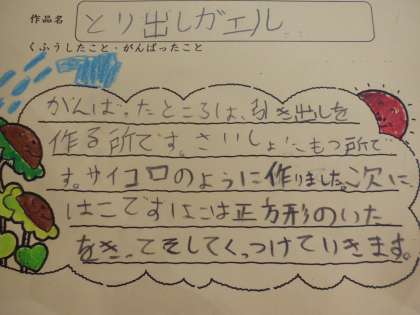 作品名
とり出しガエル
くふうしたこと・がんばったこと
がんばったところは、引き出しを
作る所です。さいしょにもつ所で
す。サイコロのように作りました。次に
はこです。はこは正方形のいた
をきってそしてくっつけていきます。